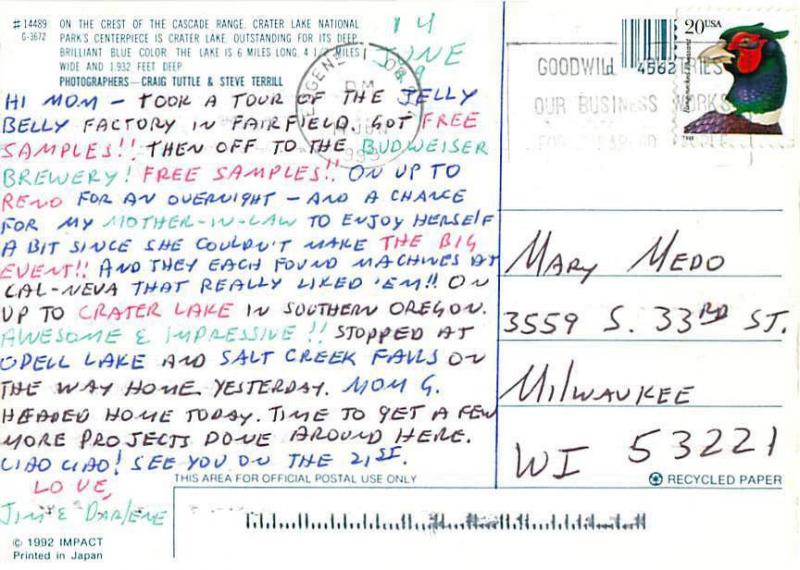 #14489 ON THE CREST OF THE CASCADE RANGE, CRATER LAKE NATIONAL
G-3672 PARK'S CENTERPIECE IS CRATER LAKE. OUTSTANDING FOR ITS DEEP
BRILLIANT BLUE COLOR, THE LAKE IS 6 MILES LONG, 4 1/2 MILES
WIDE AND 1,932 FEET DEEP
PHOTOGRAPHERS—CRAIG TUTTLE & STEVE TERRILL
14
JUNE
EUGENE
PM
14 JUN
20 USA
GOODWILL
4562
OUR BUSINESS WORKS
HI MOM – TOOK A TOUR OF THE JELLY
BELLY FACTORY IN FAIRFIELD. GOT FREE
SAMPLES!! THEN OFF TO THE BUDWEISER
BREWERY! FREE SAMPLES!! ON UP TO
RENO FOR AN OVERNIGHT – AND A CHANCE
FOR MY MOTHER-IN-LAW TO ENJOY HERSELF
A BIT SINCE SHE COULDN'T MAKE THE BIG
EVENT!! AND THEY EACH FOUND MACHINES AT
CAL-NEVA THAT REALLY LIKED 'EM!! ON
UP TO CRATER LAKE IN SOUTHERN OREGON.
AWESOME & IMPRESSIVE!! STOPPED AT
ODELL LAKE AND SALT CREEK FALLS ON
THE WAY HOME YESTERDAY. MOM G.
HEADED HOME TODAY. TIME TO GET A FEW
MORE PROJECTS DONE AROUND HERE.
CIAO CIAO! SEE YOU ON THE 21ST.
LOVE,
JIM & DARLENE
MARY MEDO
3559 S. 33RD ST.
MILWAUKEE
WI 53221
RECYCLED PAPER
THIS AREA FOR OFFICIAL POSTAL USE ONLY
© 1992 IMPACT
Printed in Japan